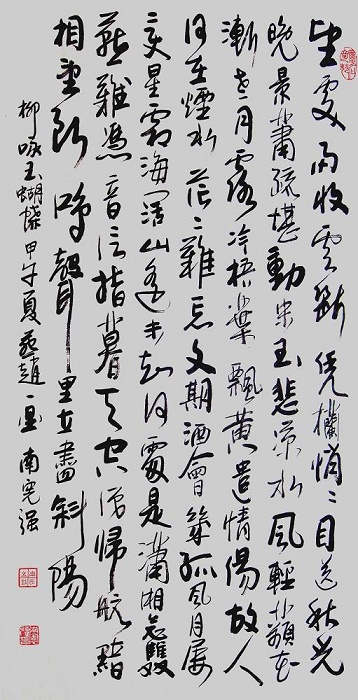 望處雨收雲斷凭欄悄〻目送秋光
晚景蕭疏堪動宋玉悲凉水風輕蘋花
漸老月露冷梧葉飄黄遣情傷故人
何在煙水茫〻難忘文期酒會幾孤風月屢
變星霜海闊山遙未知何處是瀟湘念雙
燕難憑音信指暮天空識歸航黯
相望斷鴻聲里立盡斜陽
柳咏玉蝴蝶甲午夏燕趙一 南宪强